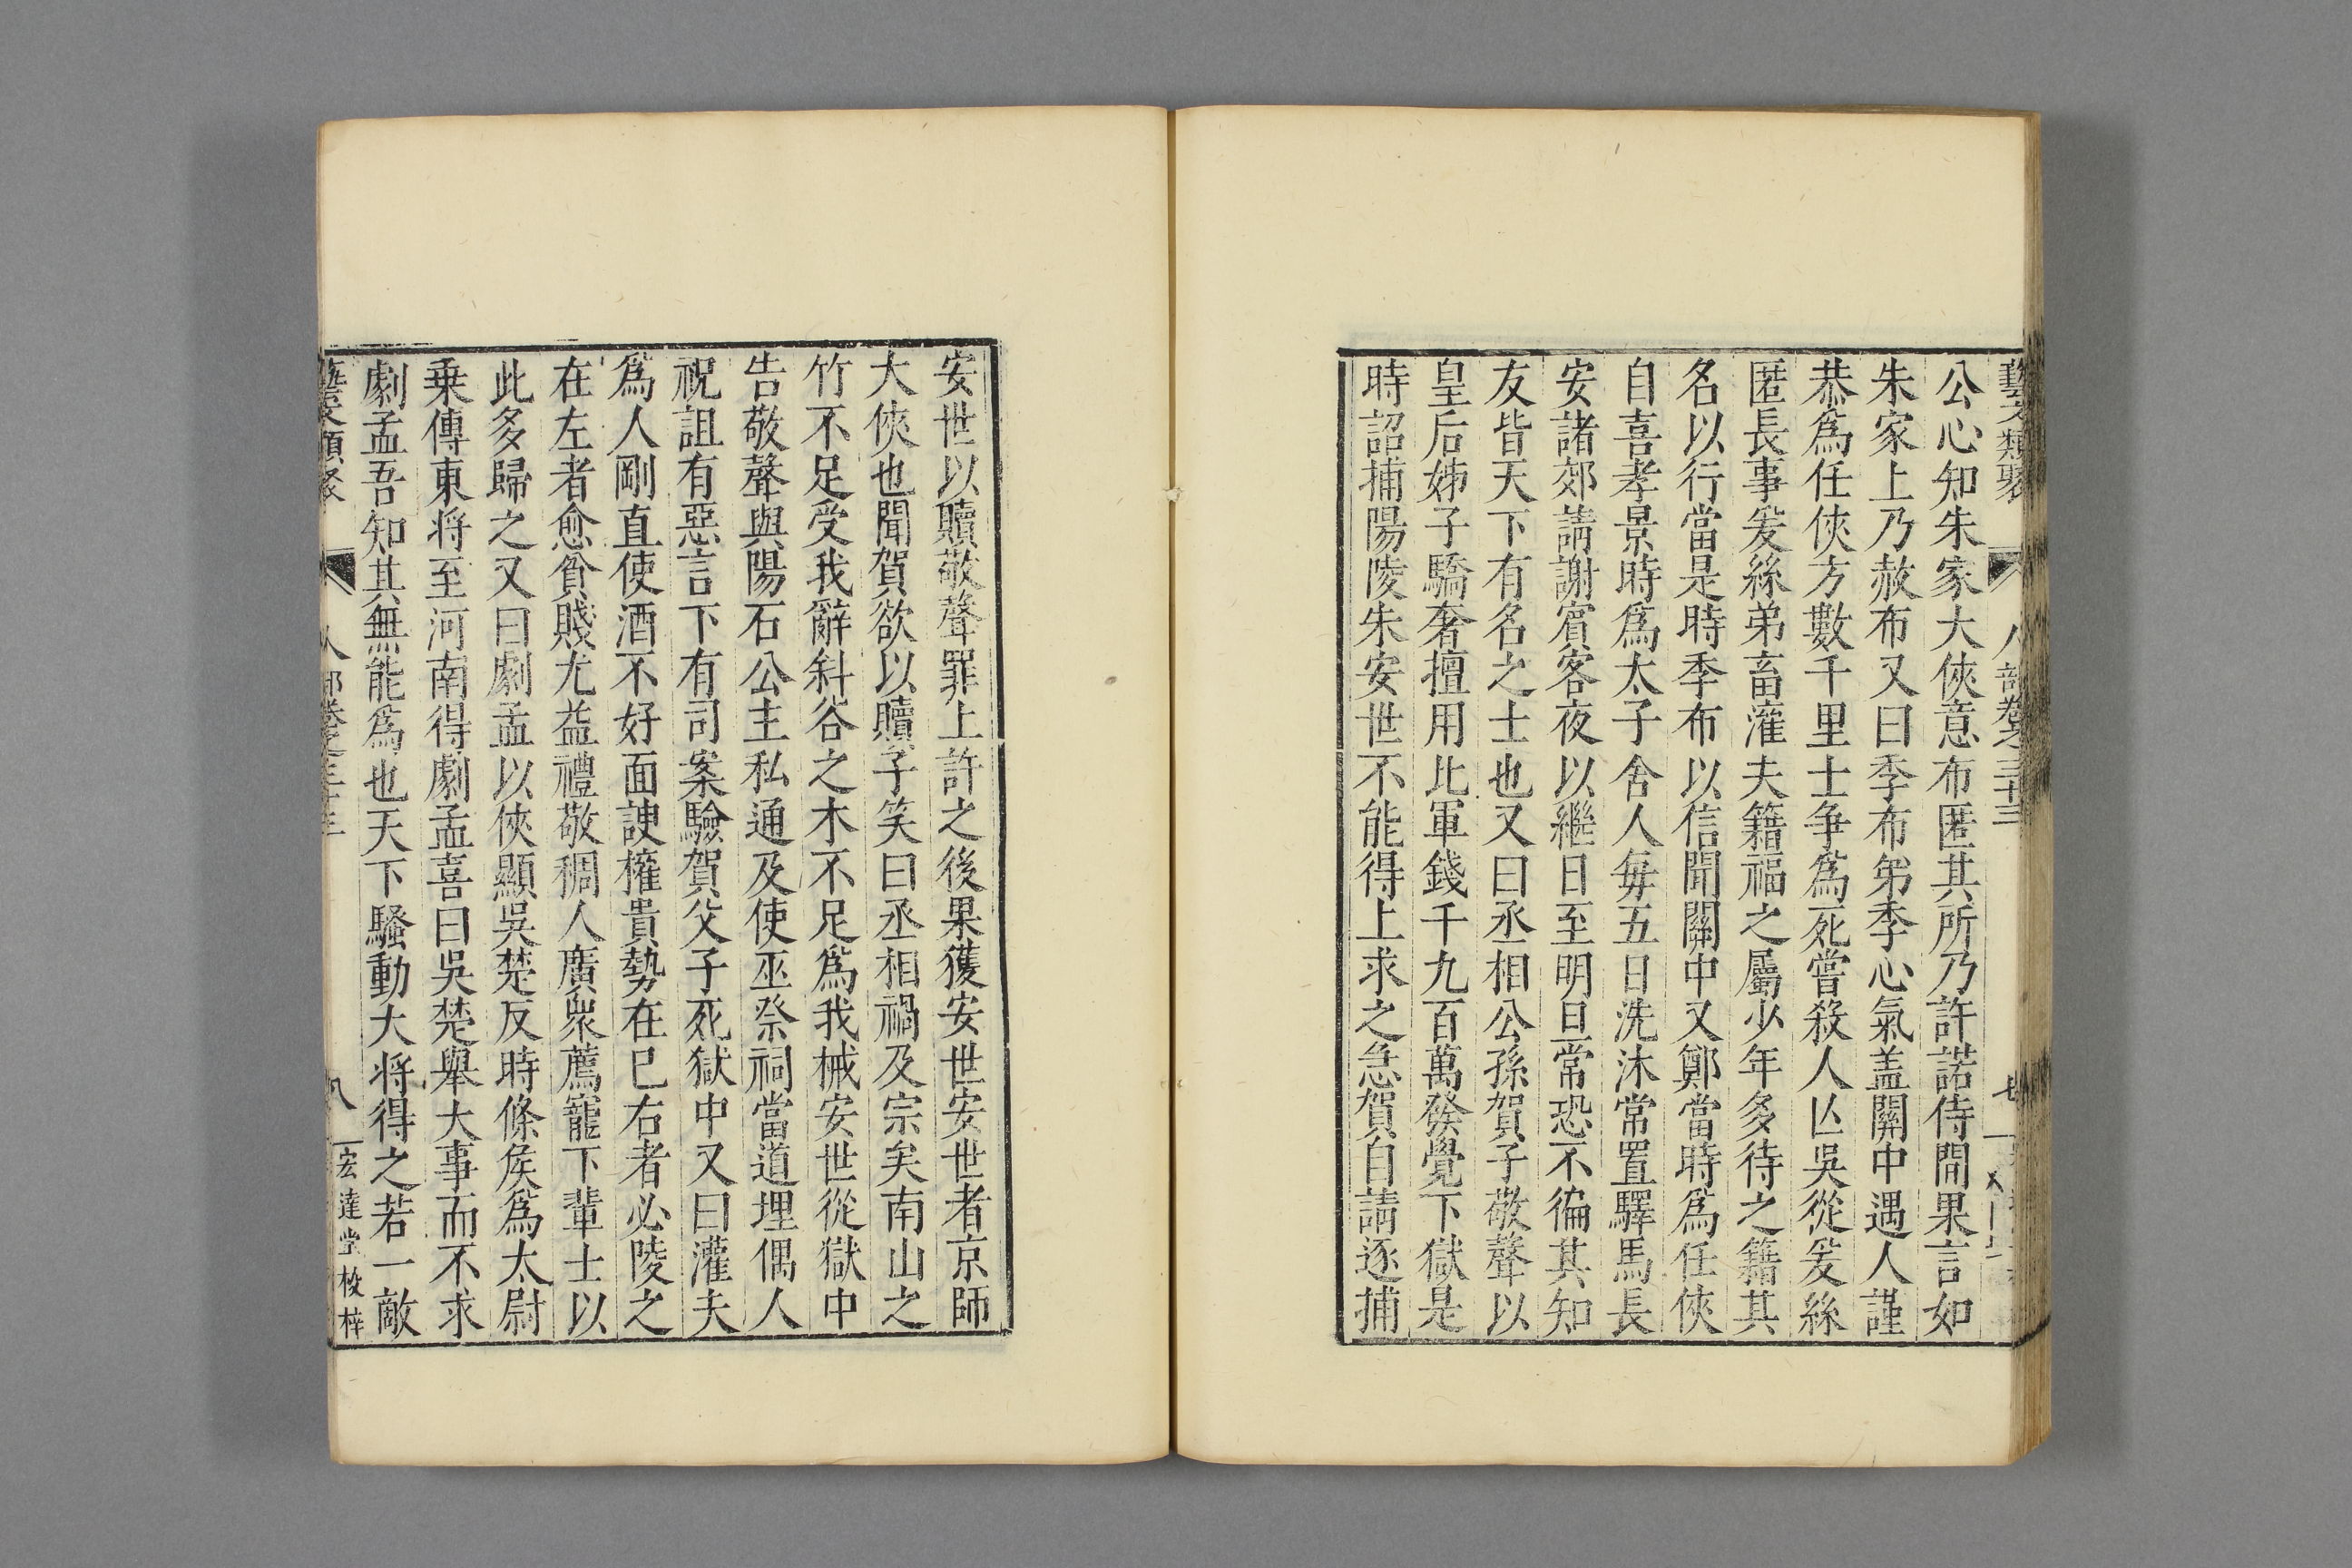 藝文類聚 人部卷之三十三 七
公心知朱家大俠意布匿其所乃許諾侍間果言如
朱家上乃赦布又曰季布弟季心氣盖關中遇人謹
恭爲任俠方數千里士争爲死嘗殺人亾吳從爰絲
匿長事爰絲弟畜灌夫籍福之屬少年多待之籍其
名以行當是時季布以信聞關中又鄭當時爲任俠
自喜孝景時爲太子舍人每五日洗沐常置驛馬長
安諸郊請謝賓客夜以繼日至明旦常恐不徧其知
友皆天下有名之士也又曰丞相公孫賀子敬聲以
皇后姊子驕奢擅用北軍錢千九百萬發覺下獄是
時詔捕陽陵朱安世不能得上求之急賀自請逐捕
安世以贖敬聲罪上許之後果獲安世安世者京師
大俠也聞賀欲以贖子笑曰丞相禍及宗矣南山之
竹不足受我辭斜谷之木不足爲我械安世從獄中
告敬聲與陽石公主私通及使巫祭祠當道埋偶人
祝詛有惡言下有司案驗賀父子死獄中又曰灌夫
爲人剛直使酒不好面諛權貴勢在已右者必陵之
在左者愈貧賤尤益禮敬稠人廣衆薦寵下輩士以
此多歸之又曰劇孟以俠顯吳楚反時條矦爲太尉
乗傳東将至河南得劇孟喜曰吳楚舉大事而不求
劇孟吾知其無能爲也天下騷動大将得之若一敵
藝文類聚 人部卷之三十三 八 宏達堂校梓